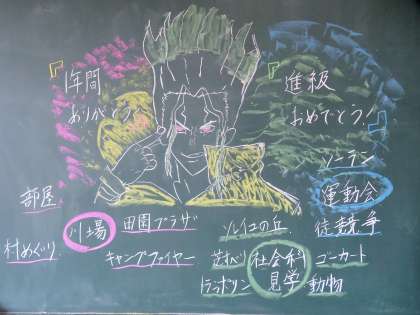 『1年間
ありがとう
進級
おめでとう!』
ソーラン
部屋
運動会
川場
田園プラザ
ソレイユの丘
徒競争
村めぐり
キャンプファイヤー
芝すべり
社会科
見学
ゴーカート
トランポリン
動物